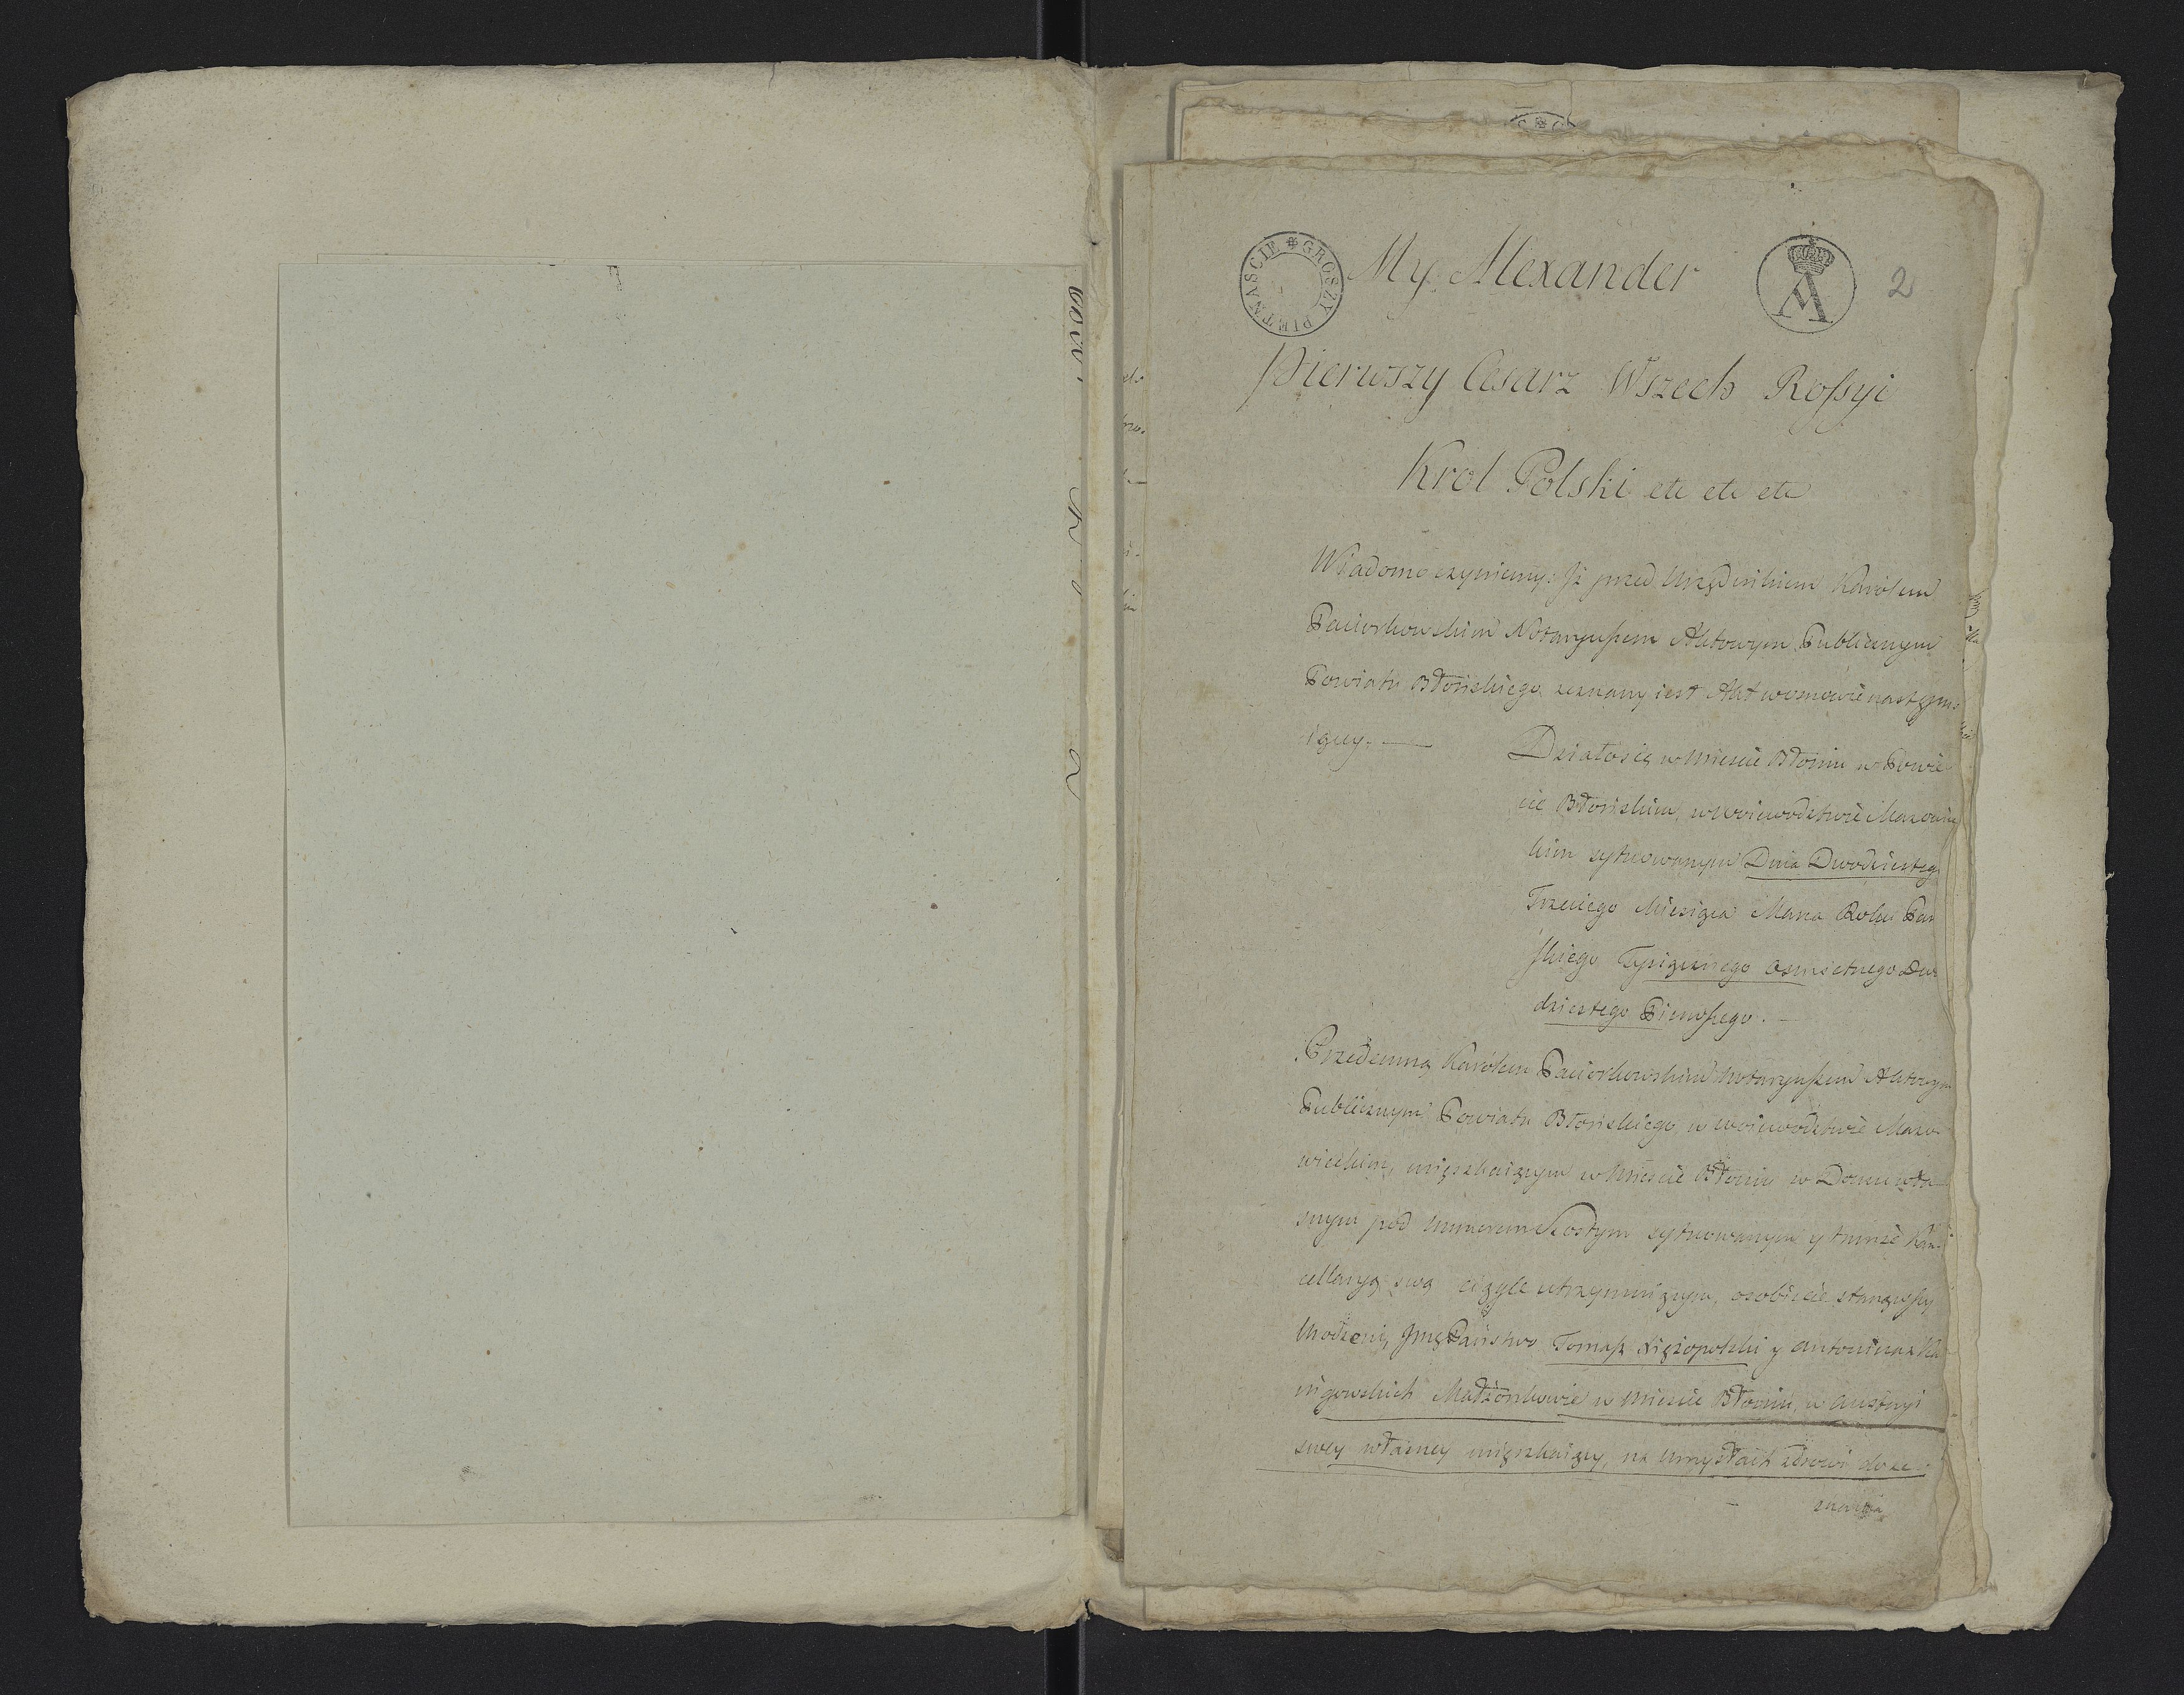 My Alexander
GROSZY PIETNASCIE
2
Pierwszy Cesarz Wszech Rossyi
Krol Polski etc etc etc
Wiadomo czyniemy: Iż przed Urzędnikiem Karolem
Paciorkowskim Notaryuszem Aktowym Publicznym
Powiatu Błońskiego zeznany iest Akt wosnowie następu
iący. —
Działosię w Mieście Błoniu w Powie
cie Błońskim, wwoiewodztwie Mazowiec
kim sytuowanym Dnia Dwodziestego
Trzeciego Miesiąca Marca Roku Pań
skiego Tysiącznego Osmsetnego Dwu
dziestego Pierwszego. —
Przedemną Karolem Paciorkowskim Notaryuszem Aktowym
Publicznym Powiatu Błońskiego w woiewodztwie Mazo-
wieckim, mięszkaiącym w Mieście Błoniu w Domu wła
snym pod Numerem Szostym sytuowanym y tamże Kan-
cellaryą swą ciągle utrzymuiącym, osobiście stanąwszy
Urodzeni, Jmć Państwo Tomasz Xiężopolski y Antonina z
Małżonkowie w Mieście Błoniu, w Austeryi
swey własney mięszkaiący, na Umysłach zdrowi do ze
znawania